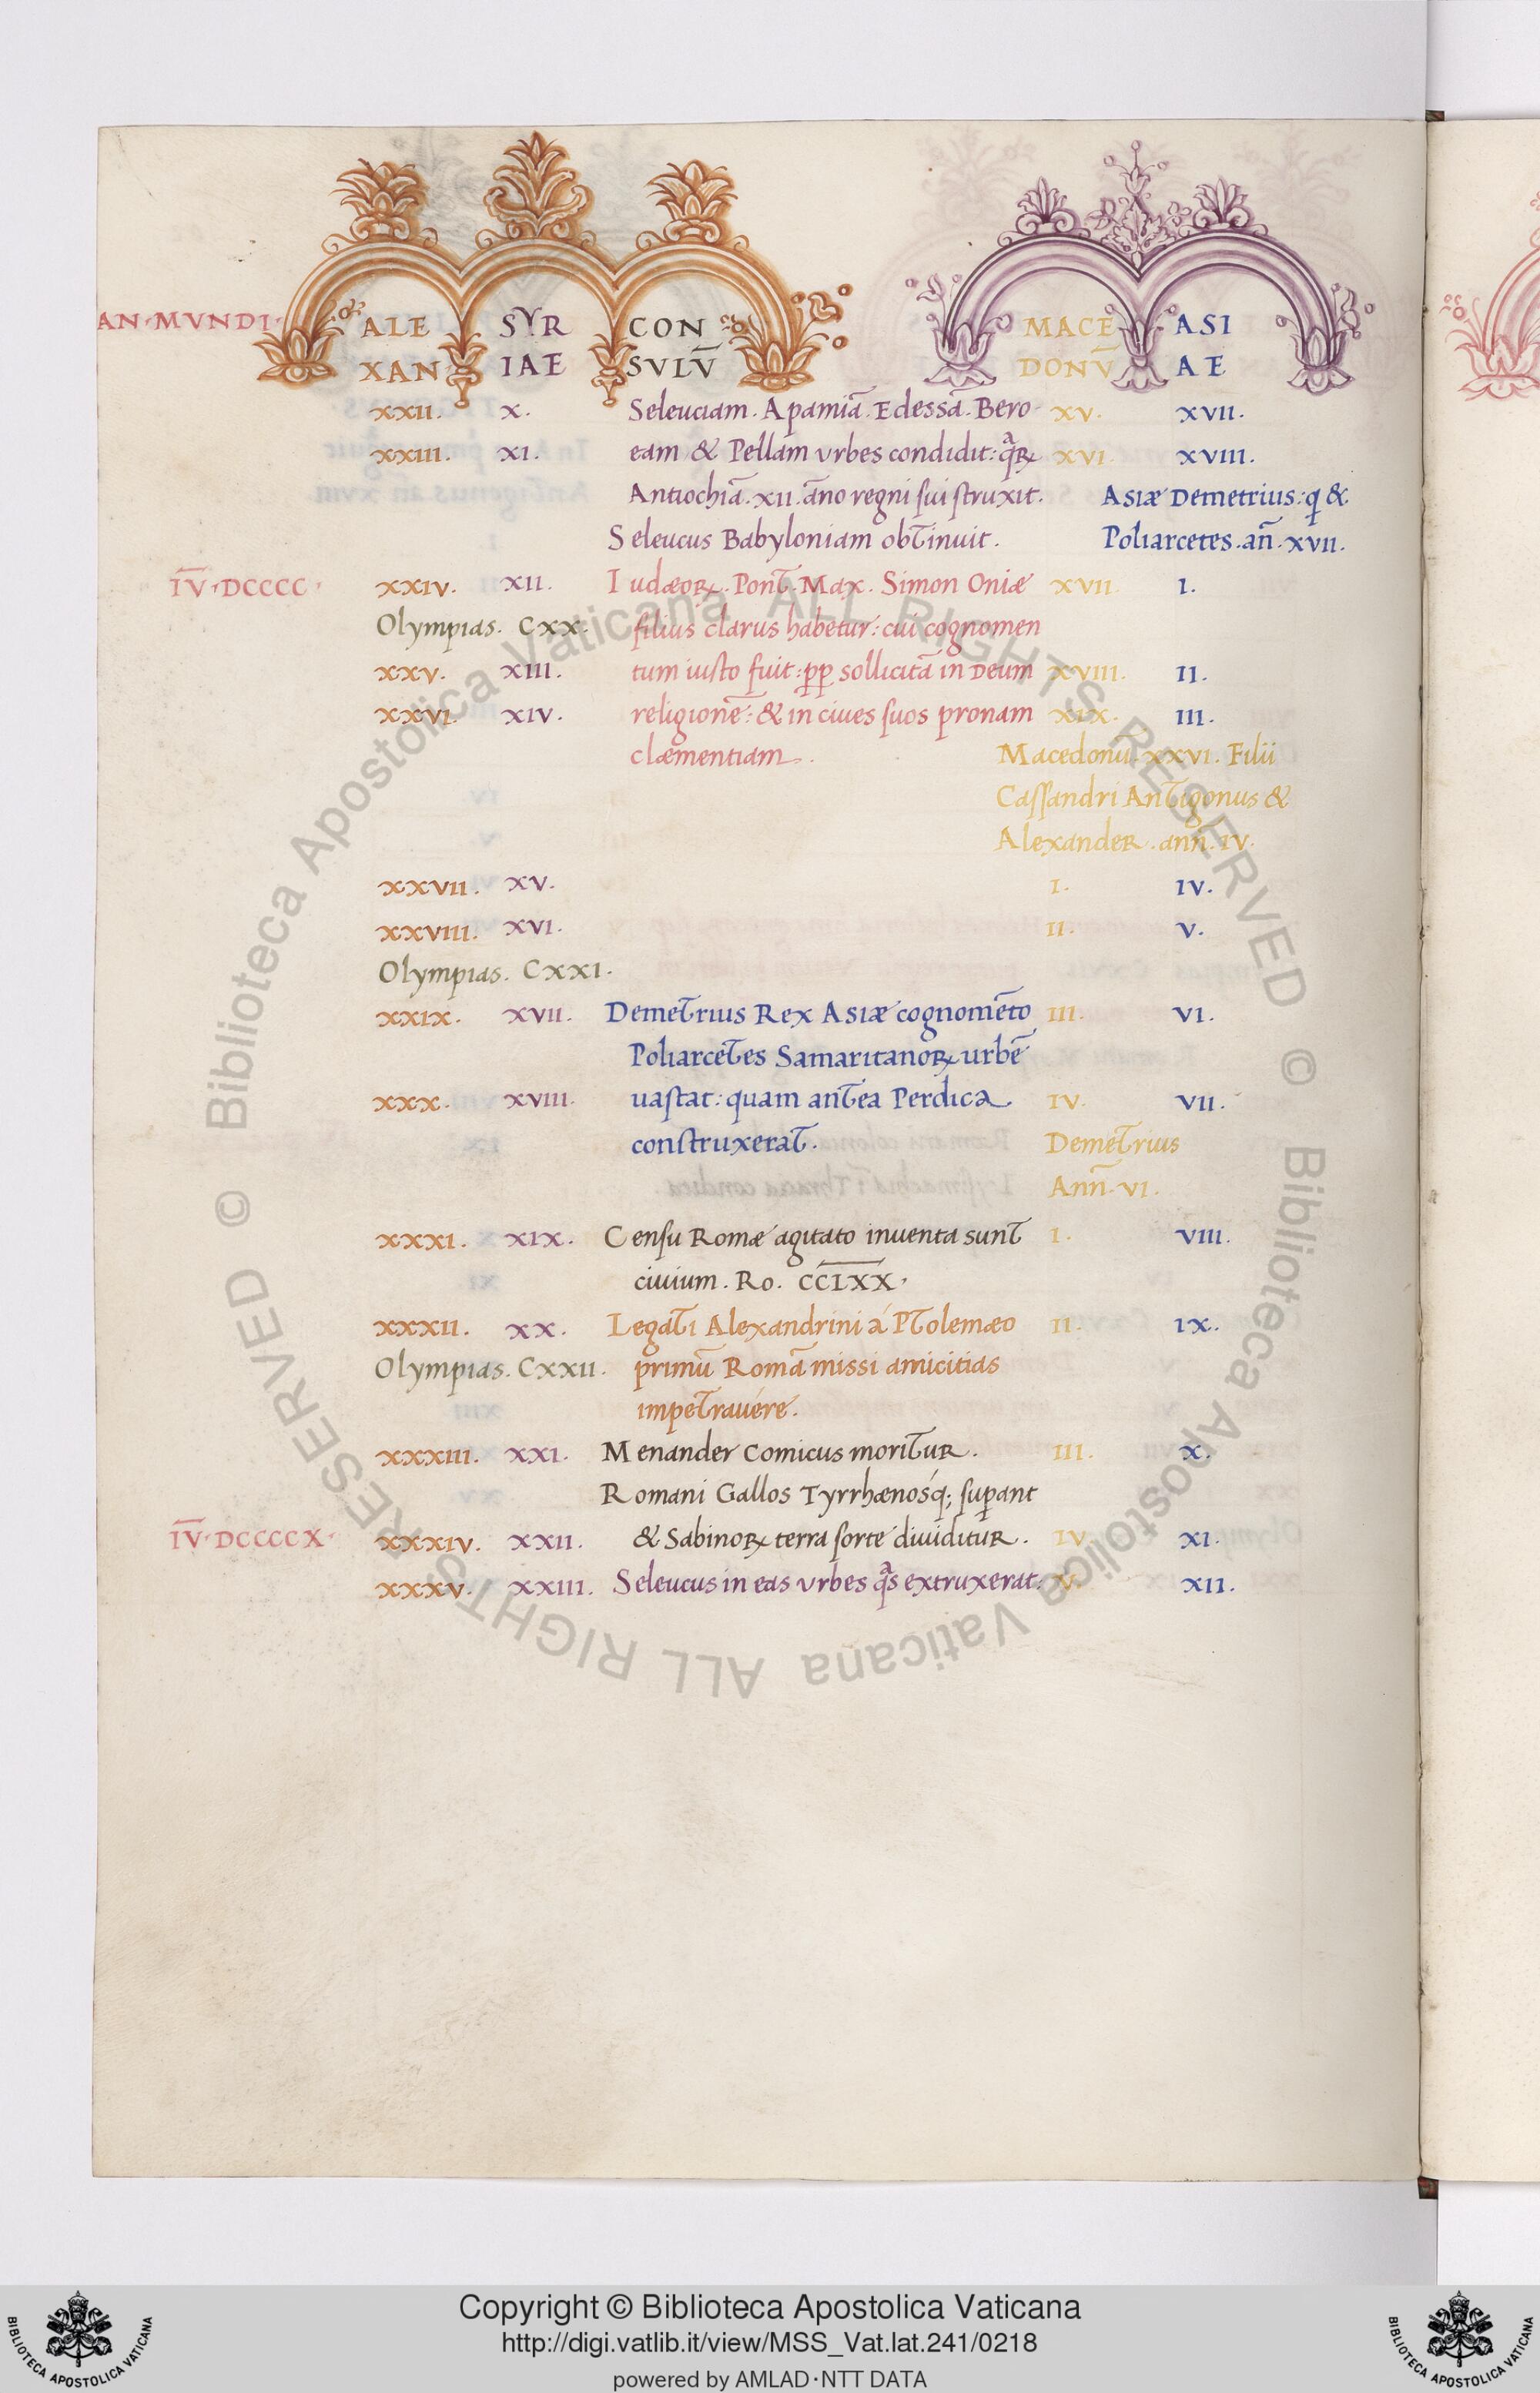 AN·MVNDI· ALE SYR CON MACE ASI
XAN IAE SVLV̄ DONV̄ AE
XXII. X. Seleuciam. Apamiā. Edessā. Bero XV. XVII.
XXIII. XI. eam & Pellam vrbes condidit: XVI. XVIII.
Antiochiā. XII. āno regni sui struxit. Asiæ Demetrius: q &
Seleucus Babyloniam obtinuit. Poliarcetes. añ. XVII.
I̅V̅·DCCCC· XXIV. XII. Iudæoꝝ. Pont̄. Max. Simon Oniæ XVII I.
Olympias. CXX. filius clarus habetur: cui cognomen
XXV. XIII. tum iusto fuit: ꝓp sollicitā in Deum XVIII. II.
XXVI. XIV. religionē: & in ciues suos pronam XIX. III.
clæmentiam. Macedonū. XXVI. Filii
Cassandri Antigonus &
Alexander. anñ. IV.
XXVII. XV. I. IV.
XXVIII. XVI. II. V.
Olympias. CXXI.
XXIX. XVII. Demetrius Rex Asiæ cognomēto III. VI.
Poliarcetes Samaritanoꝝ urbē
XXX. XVIII. uastat: quam antea Perdica IV. VII.
construxerat. Demetrius
Anñ. VI.
XXXI. XIX. Censu Romæ agitato inuenta sunt I. VIII.
ciuium. Ro. CC̅L̅X̅X̅.
XXXII. XX. Legati Alexandrini á Ptolemæo II. IX.
Olympias. CXXII. primū Romā missi amicitias
impetrauére.
XXXIII. XXI. Menander Comicus moritur. III. X.
Romani Gallos Tyrrhænosq́; suꝑant
I̅V̅·DCCCCX· XXXIV. XXII. & Sabinoꝝ terra sorte diuiditur. IV. XI.
XXXV. XXIII. Seleucus in eas vrbes qͣs extruxerat: V. XII.
© Biblioteca Apostolica Vaticana ALL RIGHTS RESERVED © Biblioteca Apostolica Vaticana ALL RIGHTS RESERVED
Copyright © Biblioteca Apostolica Vaticana
http://digi.vatlib.it/view/MSS_Vat.lat.241/0218
powered by AMLAD·NTT DATA
BIBLIOTECA APOSTOLICA VATICANA
BIBLIOTECA APOSTOLICA VATICANA